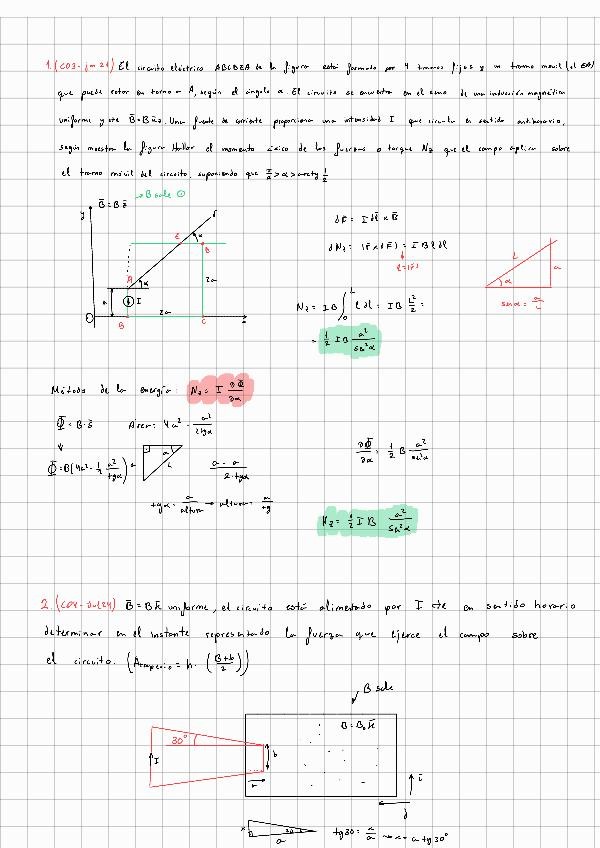 1. (C03-jn 24) El circuito eléctrico ABCDEA de la figura está formado por 4 tramos fijos y un tramo movil (el EA)
que puede rotar en torno a A, según el ángulo α. El circuito se encuentra en el seno de una inducción magnética
uniforme y cte B̄ = B ū z. Una fuente de corriente proporciona una intensidad I que circula en sentido antihorario,
según muestra la figura. Hallar el momento áxico de las fuerzas o torque Nz que el campo aplica sobre
el tramo móvil del circuito, suponiendo que π/2 > α > arctg 1/2
B̄ = B z̄
→ B sale ⊙
y
E
α
D
A
α
a
I
2a
O
B
2a
C
dF̄ = I dl̄ × B̄
dNz = (r̄ × dF̄) = I B l dl
l = |r̄|
L
a
α
senα = a/L
Nz = IB ∫₀ᴸ l dl = IB L²/2 =
= 1/2 IB a²/sen²α
Método de la energía: Nz = I ∂Φ/∂α
Φ̄ = B · s̄
Area: 4a² - a²/2tgα
Φ̄ = B(4a² - 1/2 a²/tgα)
a
α
L
a · a/2·tgα
tgα = a/altura → altura = a/tg
∂Φ̄/∂α = 1/2 B · a²/sen²α
Nz = 1/2 I B a²/sen²α
2. (C04-Jul24) B̄ = B k̄ uniforme, el circuito está alimentado por I cte en sentido horario
determinar en el instante representado la fuerza que ejerce el campo sobre
el circuito. (Atrapecio = h · (B+b/2))
B sale
B̄ = B₀ k̄
30°
I
b
ī
j̄
x
30°
a
tg30 = x/a → x = a tg30°